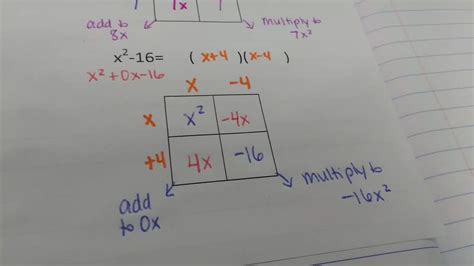 7x
add to
8x
multiply to
7x²
x²-16= (x+4)(x-4)
x²+0x-16
x -4
x x² -4x
+4 4x -16
add
to 0x
multiply to
-16x²